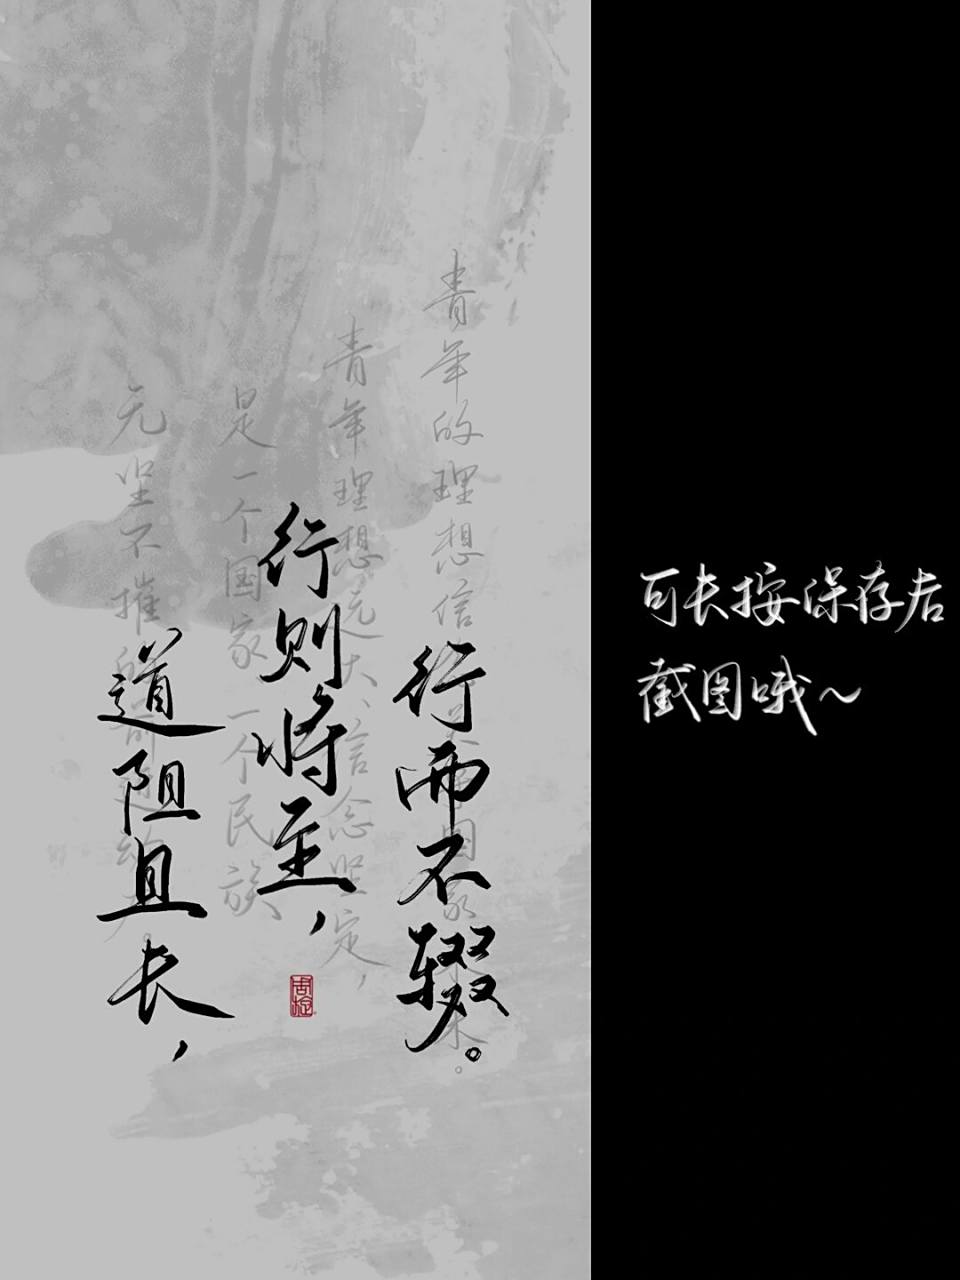 道阻且长，
行则将至，
行而不辍。
青年的理想信念关乎国家未来。
青年理想远大、信念坚定，
是一个国家、一个民族
无坚不摧的前进动力
可长按保存后
截图哦～